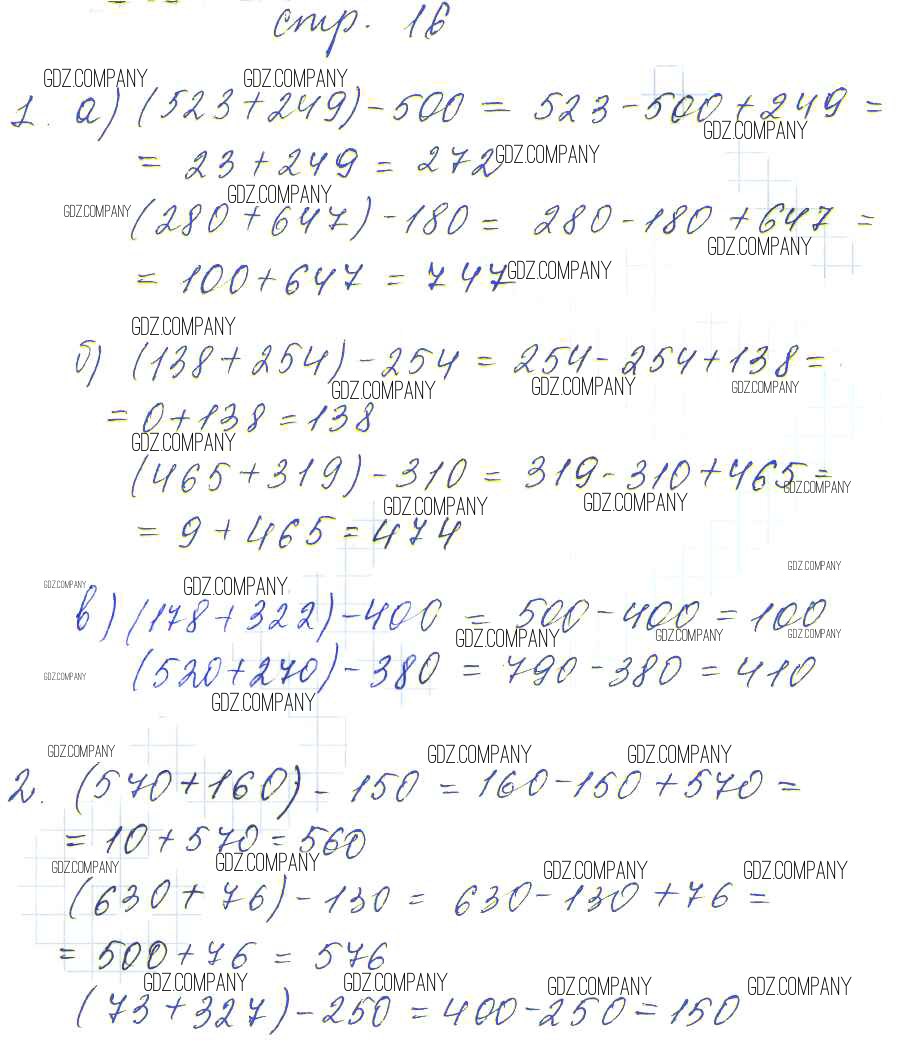 стр. 16
GDZ.COMPANY GDZ.COMPANY
1. а) (523+249)-500 = 523-500+249 =
GDZ.COMPANY
= 23+249 = 272 GDZ.COMPANY
GDZ.COMPANY
GDZ.COMPANY (280+647)-180 = 280-180+647 =
GDZ.COMPANY
= 100+647 = 747 GDZ.COMPANY
GDZ.COMPANY
б) (138+254)-254 = 254-254+138 =
GDZ.COMPANY GDZ.COMPANY GDZ.COMPANY
= 0+138 = 138
GDZ.COMPANY
(465+319)-310 = 319-310+465 =
GDZ.COMPANY
GDZ.COMPANY GDZ.COMPANY
= 9+465 = 474
GDZ.COMPANY
GDZ.COMPANY GDZ.COMPANY
в) (178+322)-400 = 500-400 = 100
GDZ.COMPANY GDZ.COMPANY GDZ.COMPANY
GDZ.COMPANY (520+270)-380 = 790-380 = 410
GDZ.COMPANY
GDZ.COMPANY GDZ.COMPANY GDZ.COMPANY
2. (570+160)-150 = 160-150+570 =
= 10+570 = 560
GDZ.COMPANY GDZ.COMPANY GDZ.COMPANY GDZ.COMPANY
(630+76)-130 = 630-130+76 =
= 500+76 = 576
GDZ.COMPANY GDZ.COMPANY GDZ.COMPANY GDZ.COMPANY
(73+327)-250 = 400-250 = 150